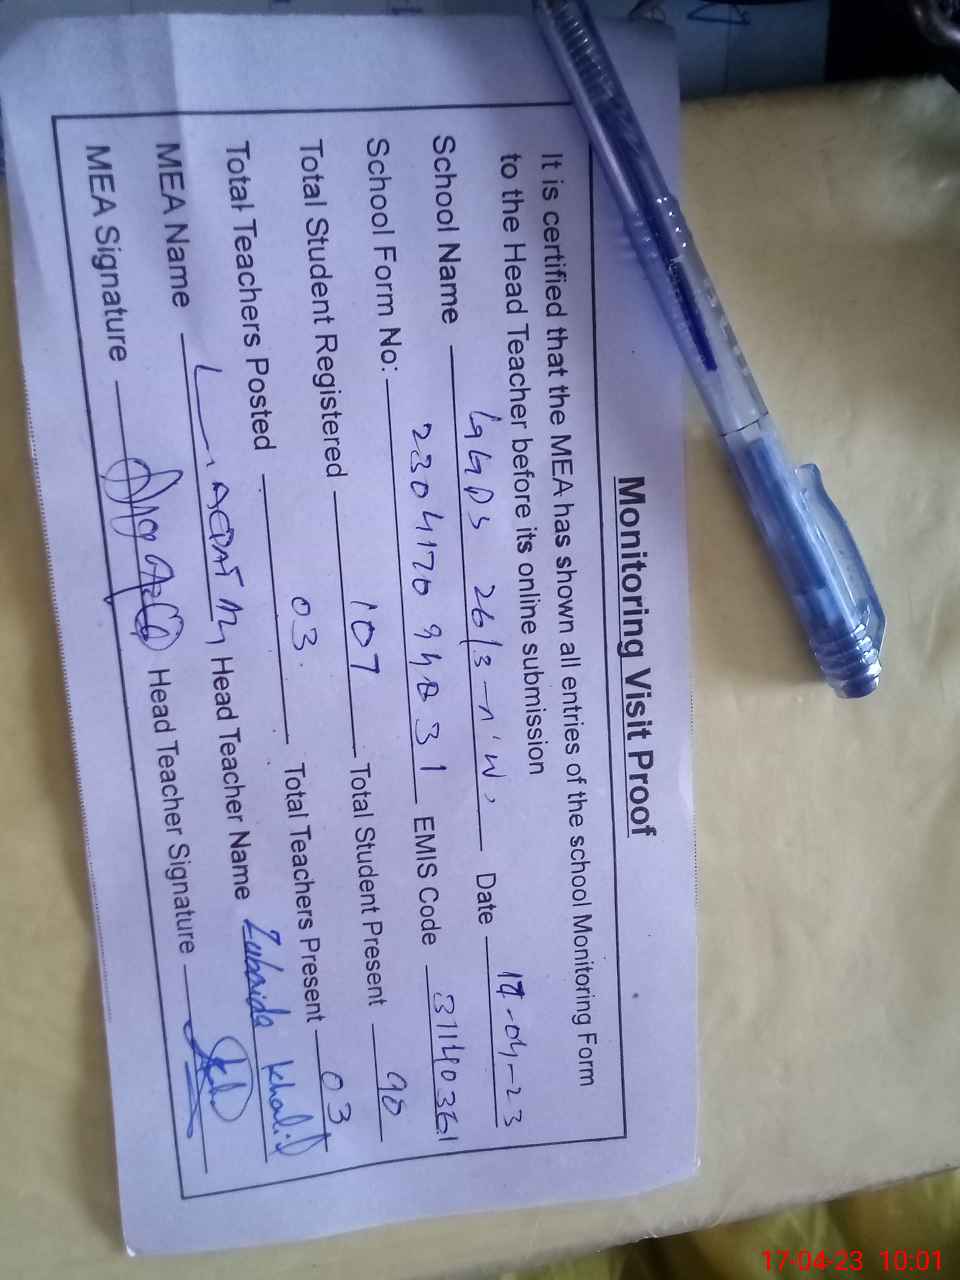 Monitoring Visit Proof
It is certified that the MEA has shown all entries of the school Monitoring Form
to the Head Teacher before its online submission
School Name GGPS 26/3-R Date 17-04-23
School Form No: 2304170 94831 EMIS Code 31140361
Total Student Registered 107 Total Student Present 90
Total Teachers Posted 03. Total Teachers Present 03
MEA Name Head Teacher Name Zubaida Khalid
MEA Signature Head Teacher Signature
17-04-23 10:01